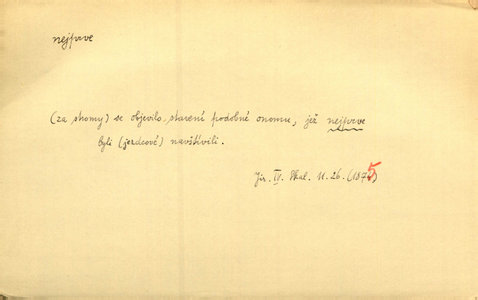 nejprve
(za stromy) se objevilo stavení podobné onomu, jež nejprve
byli (jezdcové) navštívili.
Jir. IV. Skal. 11. 26. (1875)